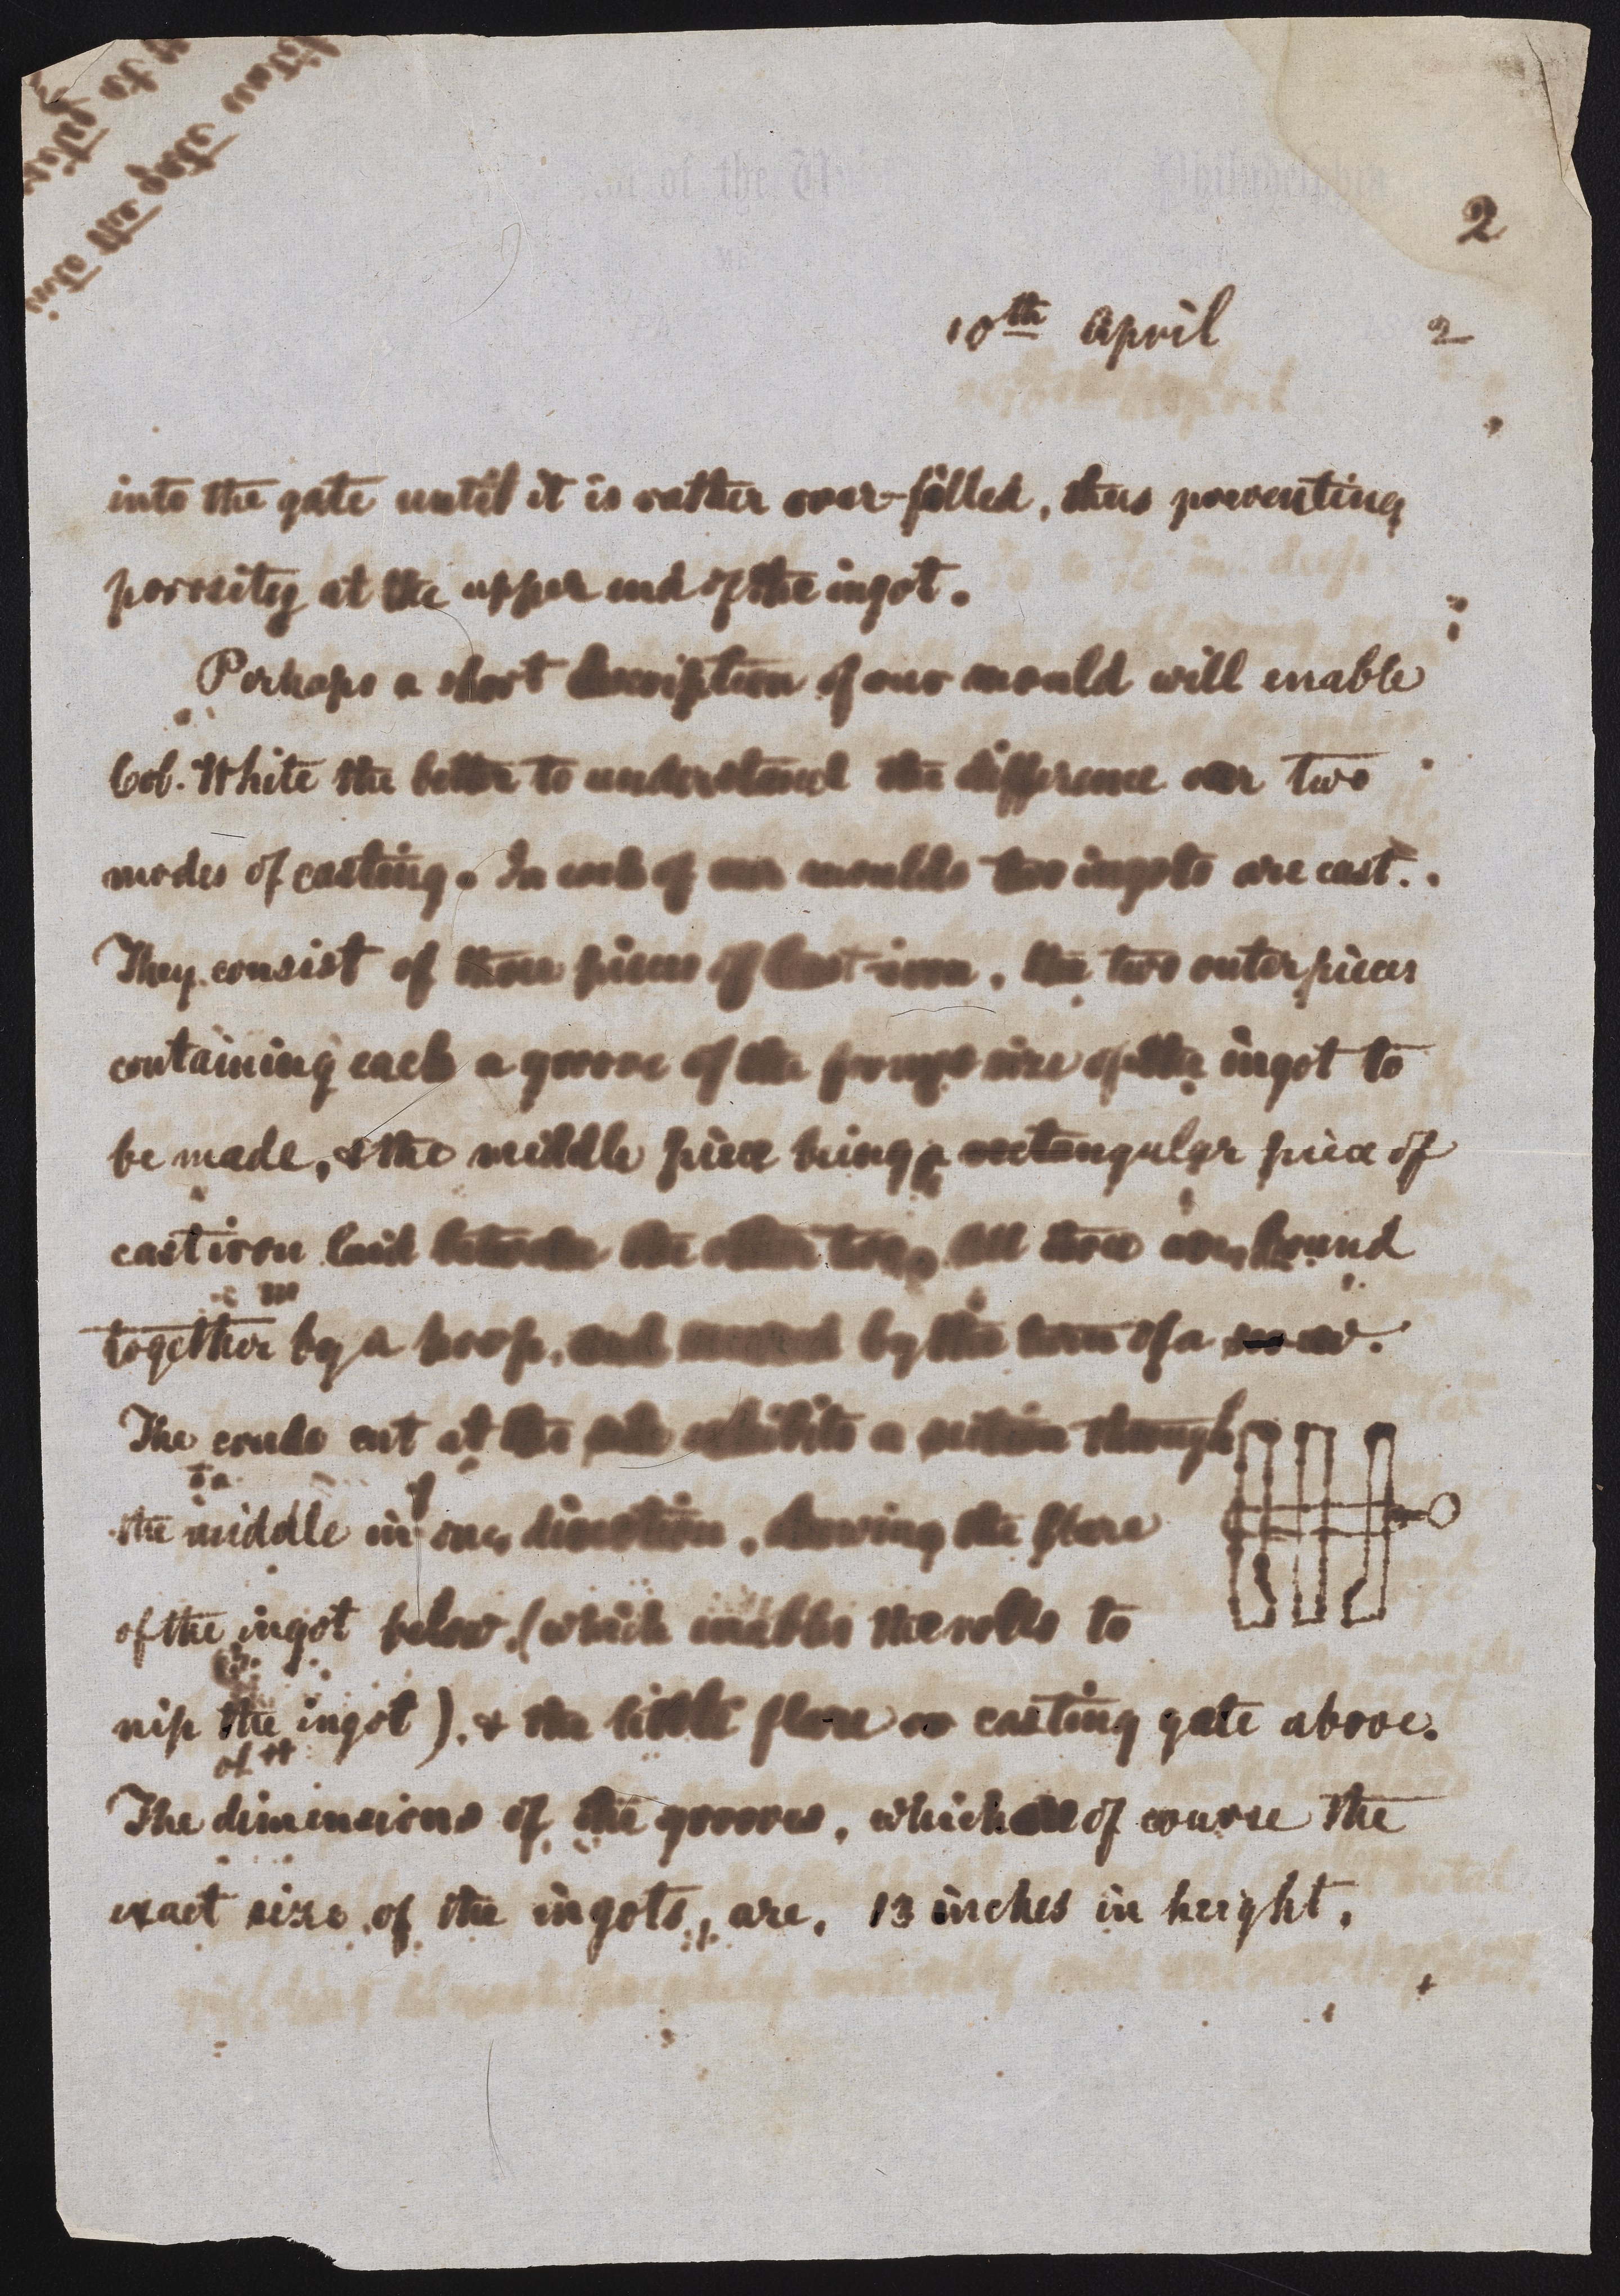 2
10th April 2
into the gate until it is rather over-filled, thus preventing
porosity at the upper end of the ingot.
Perhaps a short description of our mould will enable
Col. White the better to understand the difference our two
modes of casting. In each of our moulds two ingots are cast.
They consist of three pieces of Cast-iron, the two outer pieces
containing each a groove of the proper size of the ingot to
be made, & the middle piece being a rectangular piece of
cast iron laid between the other two. All three are bound
together by a hoop, and secured by the turn of a screw.
The crude cut at the side exhibits a section through
the middle in one direction, showing the flare
of the ingot below, (which enables the rolls to
nip the ingot), & the little flare or casting gate above.
The dimensions of the grooves, which are of course the
exact size of the ingots, are, 13 inches in height,